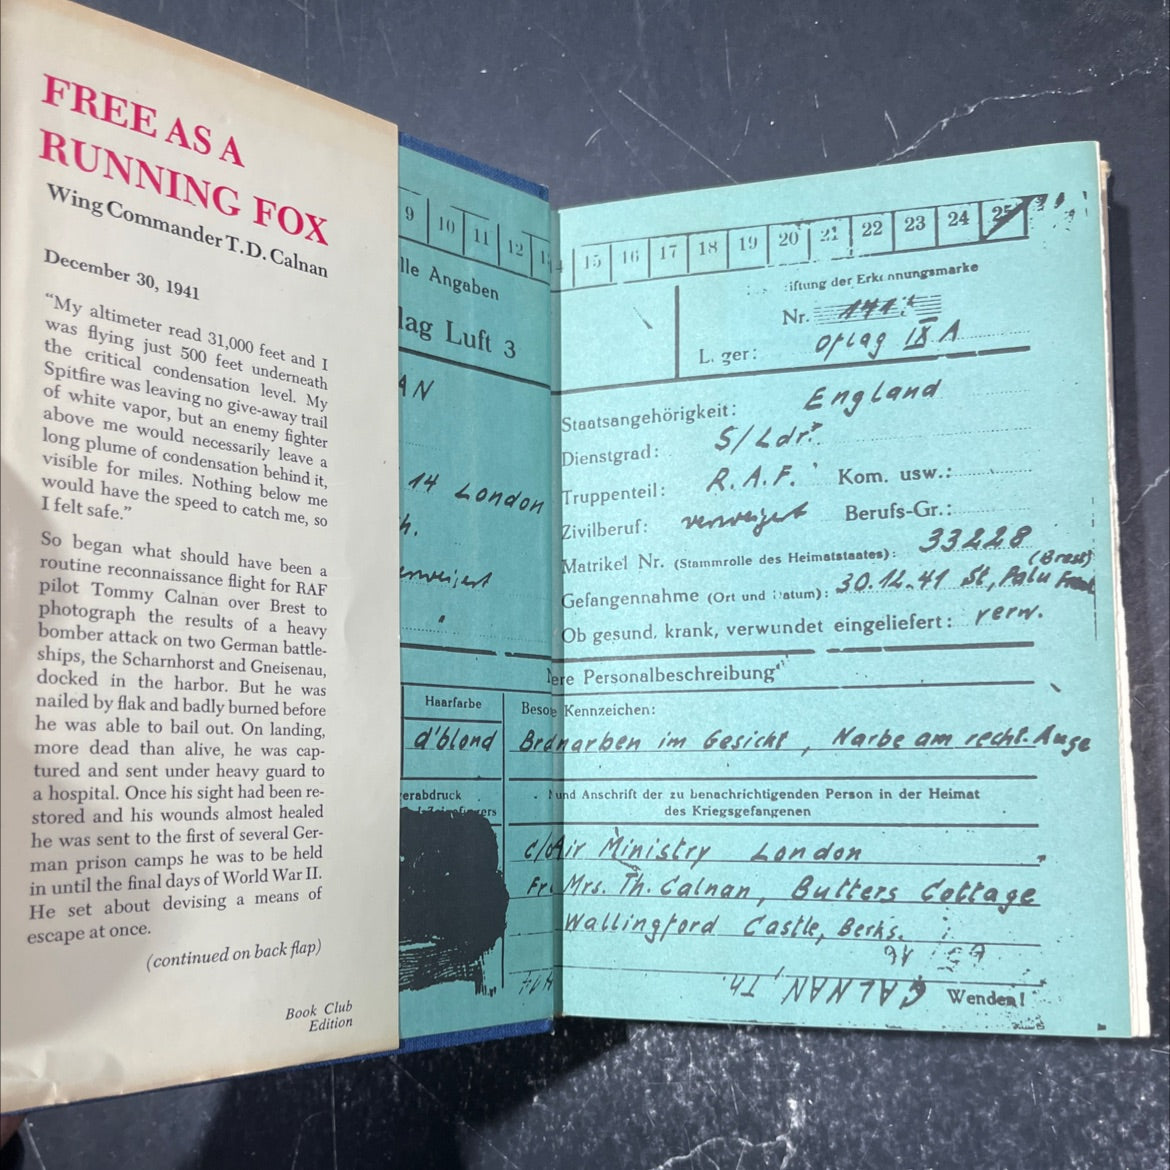 FREE AS A
RUNNING FOX
Wing Commander T. D. Calnan
December 30, 1941
"My altimeter read 31,000 feet and I
was flying just 500 feet underneath
the critical condensation level. My
Spitfire was leaving no give-away trail
of white vapor, but an enemy fighter
above me would necessarily leave a
long plume of condensation behind it,
visible for miles. Nothing below me
would have the speed to catch me, so
I felt safe."
So began what should have been a
routine reconnaissance flight for RAF
pilot Tommy Calnan over Brest to
photograph the results of a heavy
bomber attack on two German battle-
ships, the Scharnhorst and Gneisenau,
docked in the harbor. But he was
nailed by flak and badly burned before
he was able to bail out. On landing,
more dead than alive, he was cap-
tured and sent under heavy guard to
a hospital. Once his sight had been re-
stored and his wounds almost healed
he was sent to the first of several Ger-
man prison camps he was to be held
in until the final days of World War II.
He set about devising a means of
escape at once.
(continued on back flap)
Book Club
Edition
9 10 11 12
lle Angaben
lag Luft 3
AN
14 London
h.
erweigert
"
Haarfarbe
d'blond
erabdruck
15 16 17 18 19 20 21 22 23 24 25
iftung der Erkennungsmarke
Nr.
Lager: Oflag IX A
Staatsangehörigkeit: England
Dienstgrad: S/Ldr.
Truppenteil: R.A.F. Kom. usw.:
Zivilberuf: verweigert Berufs-Gr.:
Matrikel Nr. (Stammrolle des Heimatstaates): 33228
(Brest)
Gefangennahme (Ort und Datum): 30.12.41 St, Palu
Ob gesund, krank, verwundet eingeliefert: verw.
ere Personalbeschreibung
Kennzeichen:
Brdnarben im Gesicht, Narbe am recht. Auge
und Anschrift der zu benachrichtigenden Person in der Heimat
des Kriegsgefangenen
c/o Air Ministry London
Fr. Mrs. Th. Calnan, Butters Cottage
Wallingford Castle, Berks.
CALNAN, Th.
Wenden!